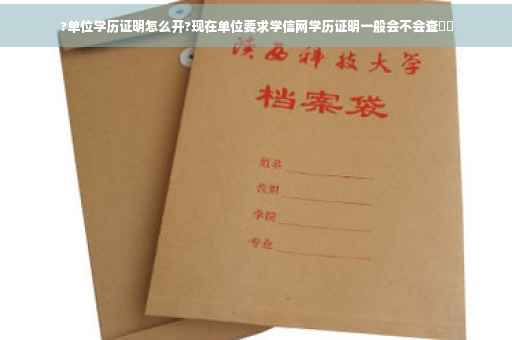 ?单位学历证明怎么开?现在单位要求学信网学历证明一般会不会查
陕西科技大学
档案袋
姓名
性别
学院
专业